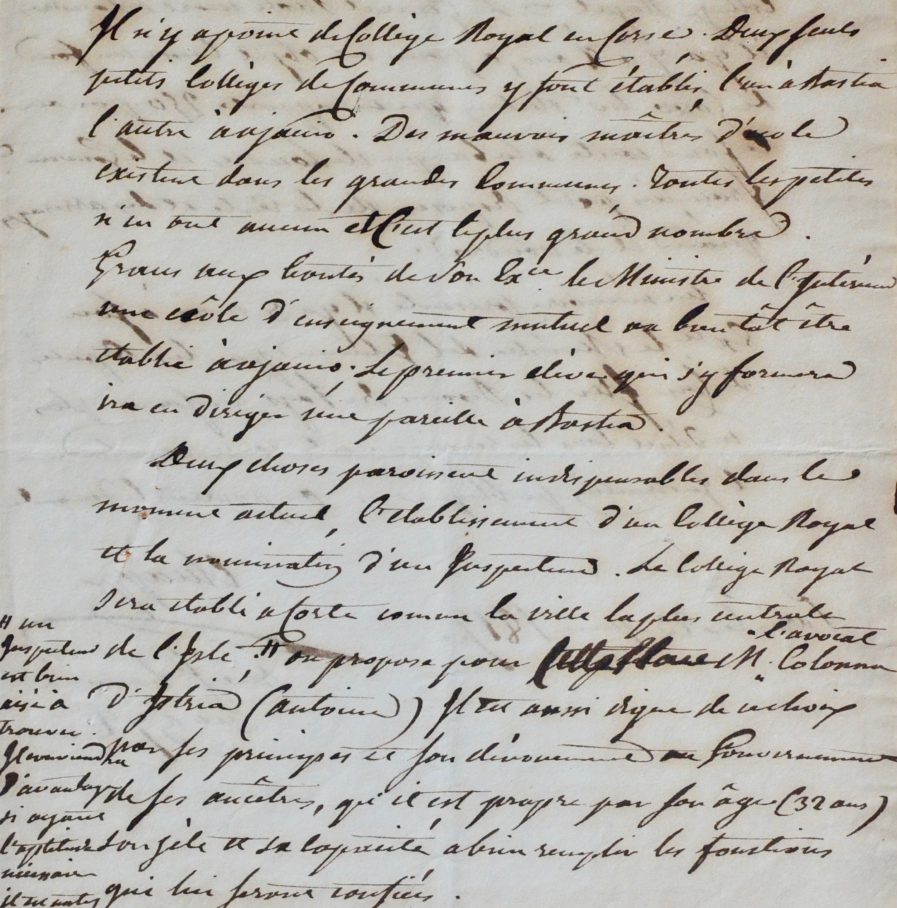 Il n'y a point de Collège Royal en Corse. Deux seuls
petits Collèges de Communes y sont établis, l'un à Bastia
l'autre à ajaccio. Des mauvais maîtres d'école
existent dans les grandes Communes. Toutes les petites
n'en ont aucun et C'est le plus grand nombre.
Graces aux bontés de Son Ex.ce le Ministre de l'Intérieur
une école d'enseignement mutuel va bientôt être
établie à ajaccio. Le premier élève qui s'y formera
ira en diriger une pareille à Bastia.
Deux choses paroissent indispensables dans le
moment actuel, l'etablissement d'un Collège Royal
et la nomination d'un Inspecteur. Le Collège Royal
sera établi a Corte comme la ville la plus centrale
de l'Isle. # on propose pour M. l'avocat Colonna
d'Istria (antoine) Il est aussi digne de ce choix
par ses principes et son dévouement au Gouvernement
de ses ancêtres, qu'il est propre par son âge (32 ans)
son zèle et sa capacité, a bien remplir les fonctions
qui lui seront confiées.
# un
Inspecteur
est bien
aisé à
trouver.
Il conviendra
d'avantage
si ayant
l'aptitude
nécessaire